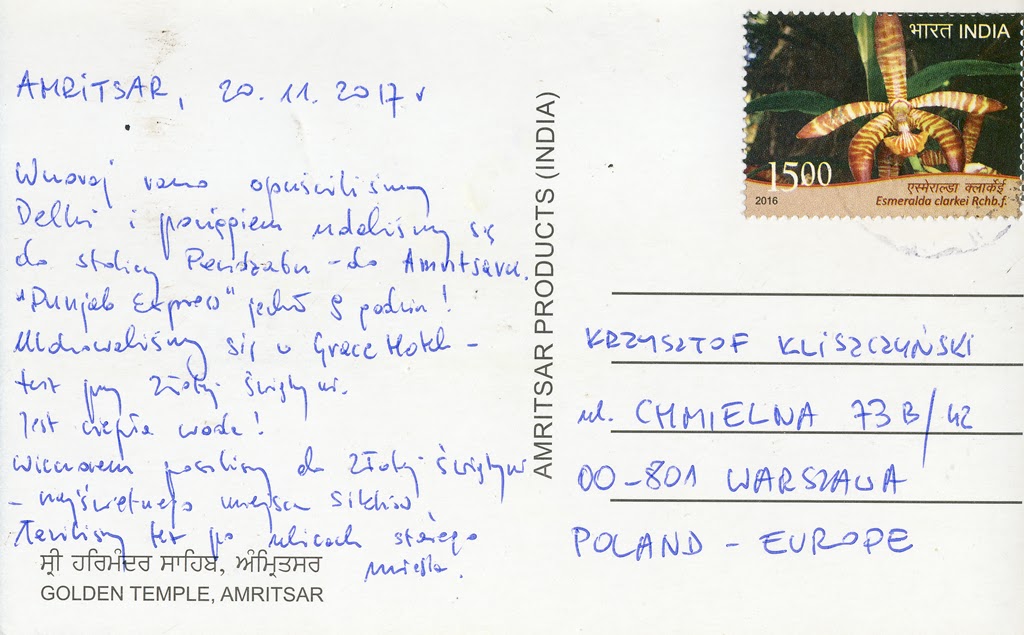 AMRITSAR, 20.11.2017 r
Wczoraj rano opuściliśmy
Delhi i pociągiem udaliśmy się
do stolicy Pendżabu - do Amritsaru.
"Punjab Express" jechał 9 godzin!
Ulokowaliśmy się w Grace Hotel -
tuż przy Złotej Świątyni.
Jest ciepła woda!
Wieczorem poszliśmy do Złotej Świątyni
- najświętszego miejsca Sikhów.
też po ulicach starego
miasta.
ਸ੍ਰੀ ਹਰਿਮੰਦਰ ਸਾਹਿਬ, ਅੰਮ੍ਰਿਤਸਰ
GOLDEN TEMPLE, AMRITSAR
AMRITSAR PRODUCTS (INDIA)
भारत INDIA
1500
एस्मेराल्डा क्लार्कई
2016
Esmeralda clarkei Rchb.f.
KRZYSZTOF KLISZCZYŃSKI
ul. CHMIELNA 73B/42
00-801 WARSZAWA
POLAND - EUROPE